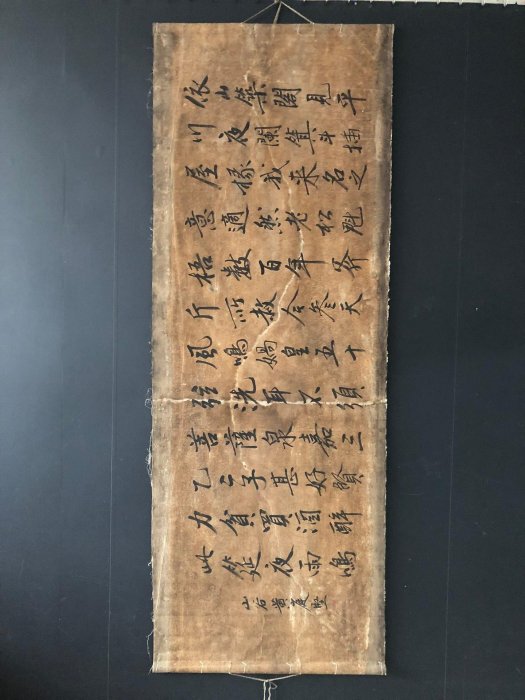 依山築閣見平
川夜闌箕斗插
屋椽我来名之
意適然老松魁
梧數百年斧
斤所赦今參天
風鳴媧皇五十
弦洗耳不須
菩薩泉嘉二
三子甚好賢
力貧買酒醉
此筵夜雨鳴
山谷黄庭堅